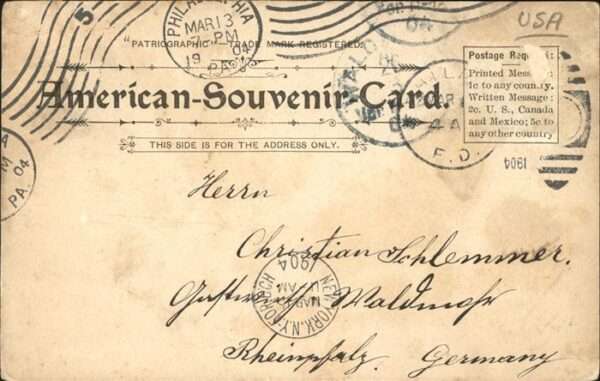 USA
PHILADELPHIA
MAR 13
7-PM
19 04
PA.
"PATRIOGRAPHIC" TRADE MARK REGISTERED
American-Souvenir-Card.
THIS SIDE IS FOR THE ADDRESS ONLY.
Postage
Printed
1c to any country.
Written Message:
2c. U. S., Canada
and Mexico; 5c to
any other country
1904
PA. 04
F. D.
Herrn
Christian Schlemmer.
Waldmohr
Rheinpfalz. Germany
NEW YORK, N.Y.
MAR
AM
1904